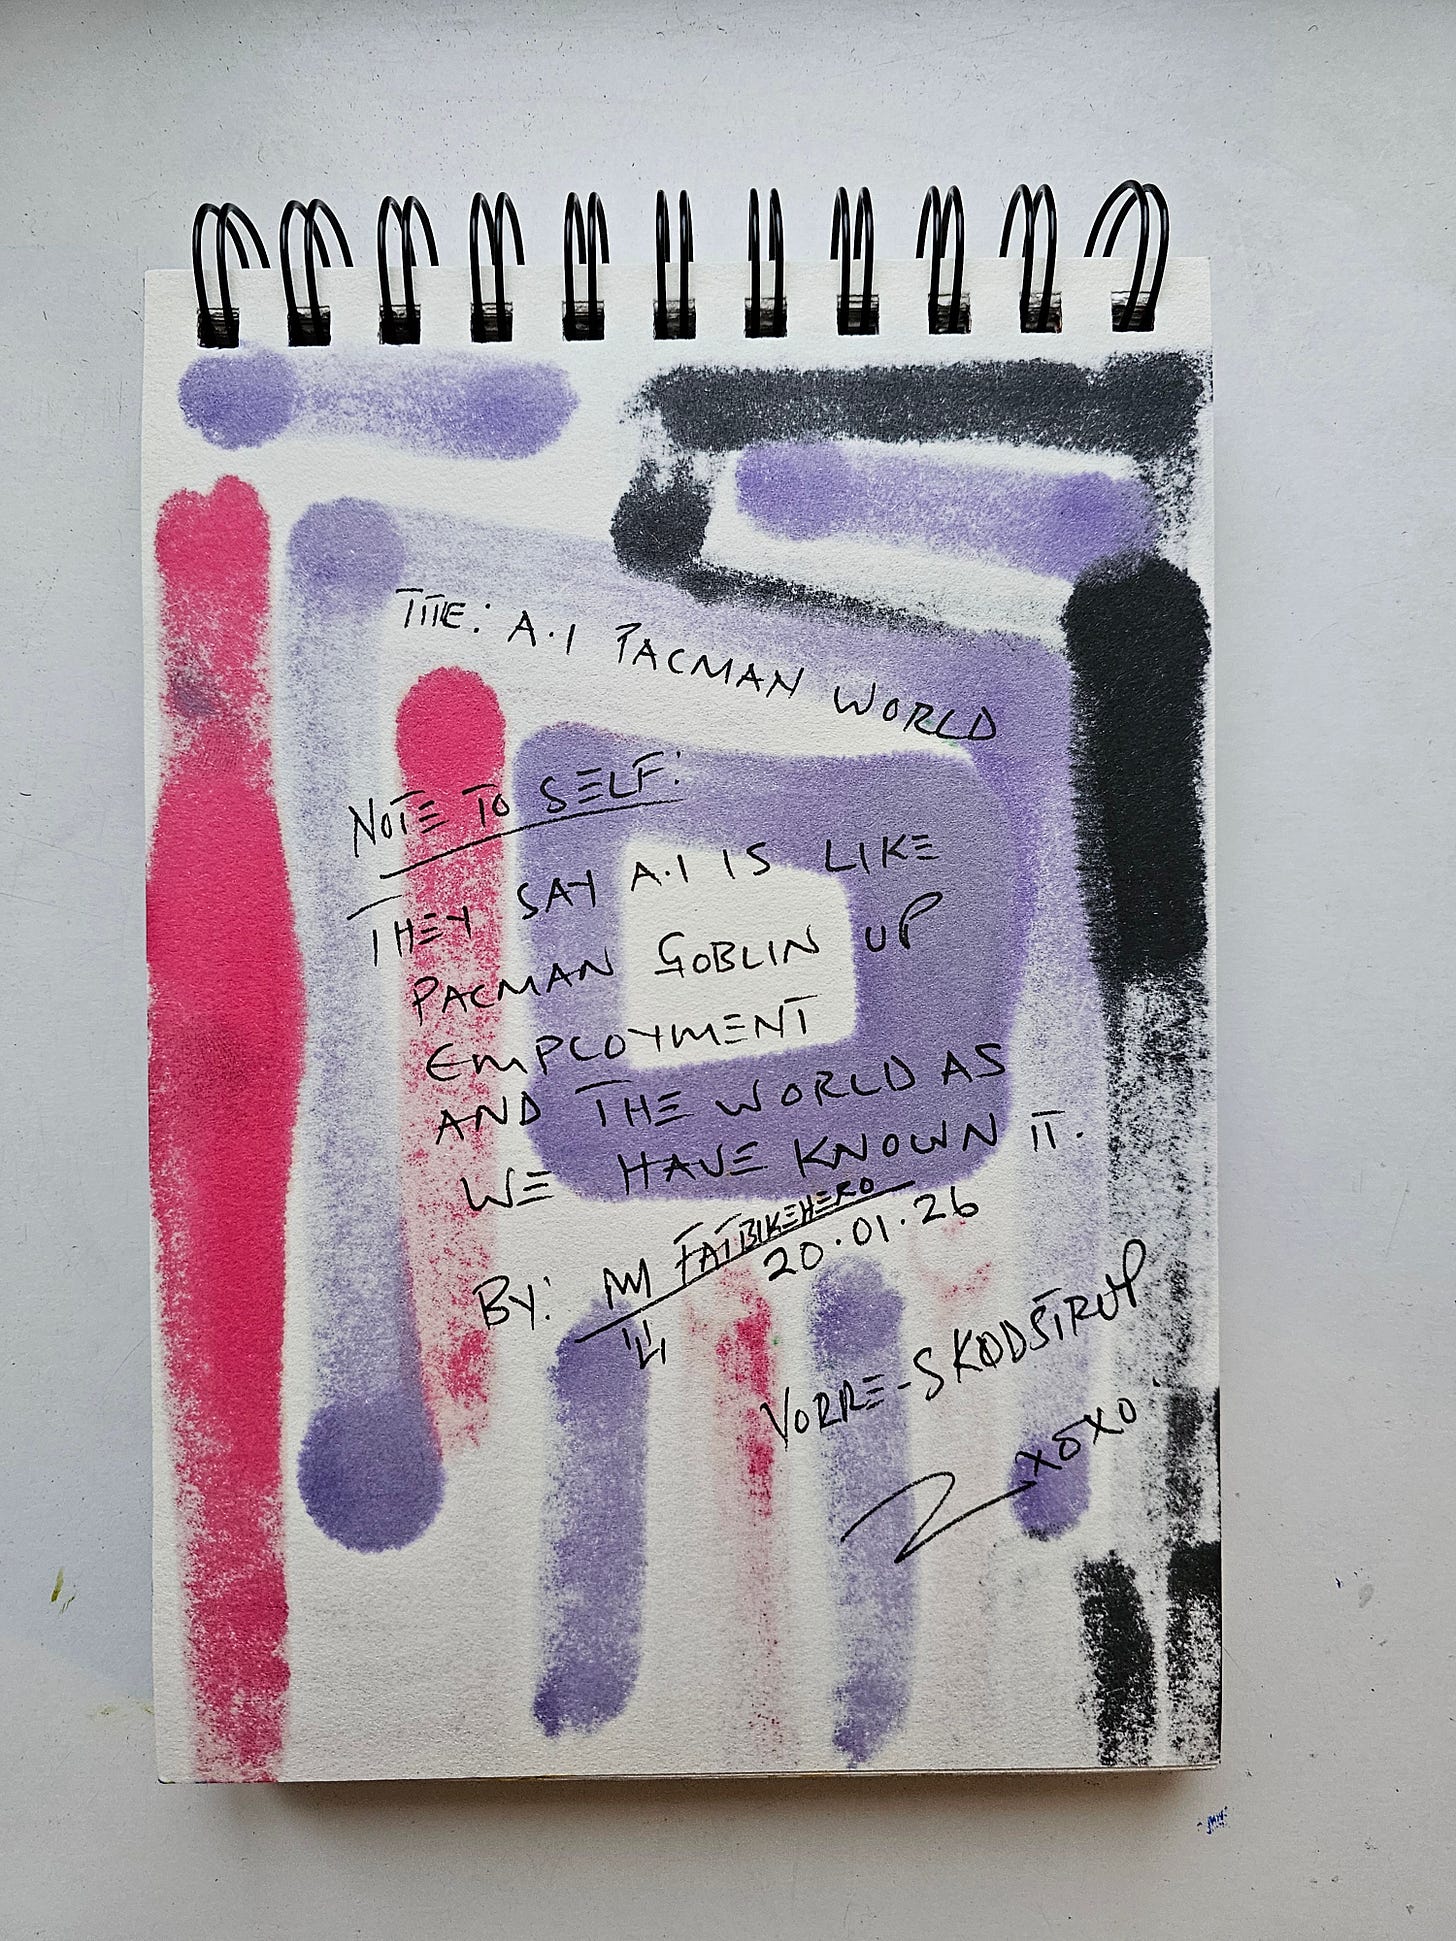 TITLE: A.I PACMAN WORLD
NOTE TO SELF:
THEY SAY A.I IS LIKE
PACMAN GOBLIN UP
EMPLOYMENT
AND THE WORLD AS
WE HAVE KNOWN IT.
By: FATBIKEHERO
20.01.26
VORRE-SKØDSTRUP
xoxo